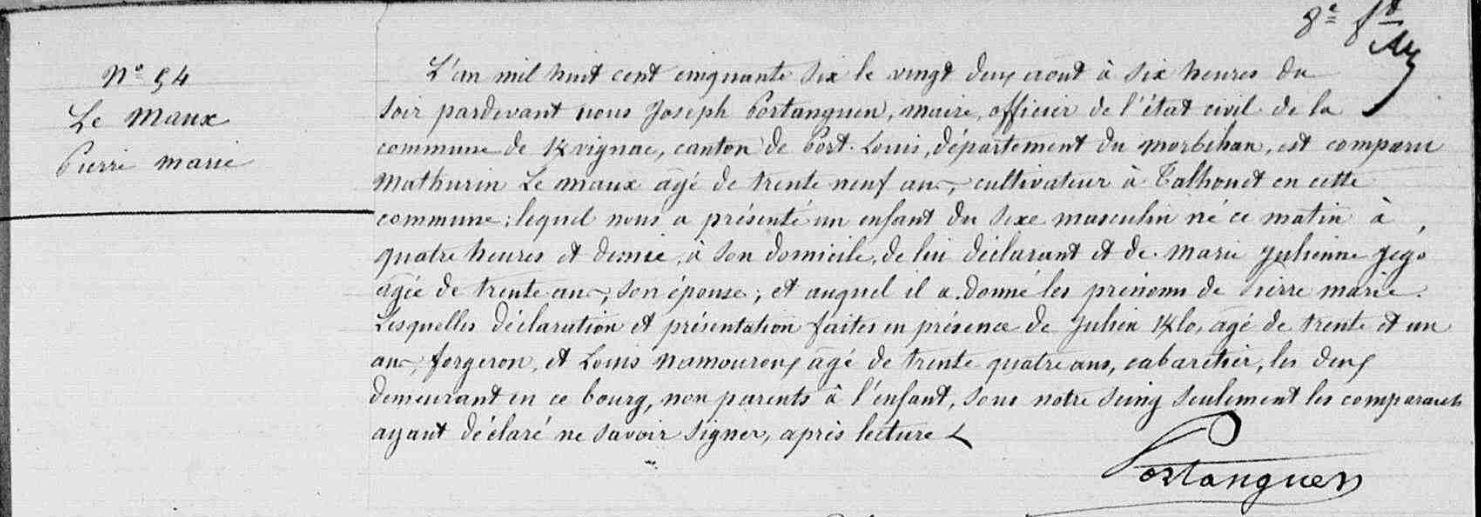 8e
N° 54
Le Maux
Pierre marie
L'an mil huit cent cinquante six le vingt deux août à six heures du
soir pardevant nous Joseph Portanguen, maire, officier de l'état civil de la
commune de Kvignac, canton de Port-Louis, département du morbihan, est comparu
Mathurin Le Maux agé de trente neuf ans, cultivateur à Talhouet en cette
commune; lequel nous a présenté un enfant du sexe masculin né ce matin à
quatre heures et demie, à son domicile, de lui déclarant et de Marie Julienne Jégo
agée de trente ans, son épouse; et auquel il a donné les prénoms de Pierre marie.
Lesquelles déclaration et présentation faites en présence de Julien Klo, agé de trente et un
ans, forgeron, et Louis Namouroux agé de trente quatre ans, cabaretier, les deux
demeurant en ce bourg, non parents à l'enfant, sous notre seing seulement les comparants
ayant déclaré ne savoir signer, après lecture
Portanguen